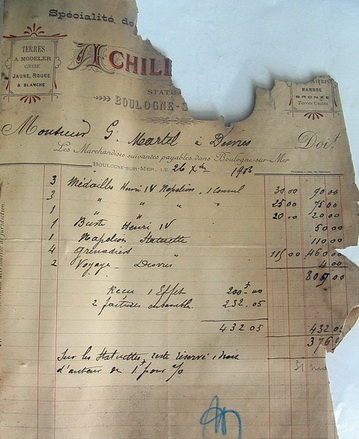 Spécialité de
TERRES
A MODELER
GRISE
JAUNE, ROUGE
& BLANCHE
ACHILL
MARBRE
BRONZE
TERRE CUITE
STATU
BOULOGNE-S
Monsieur G. Martel à Desvres Doit
Les Marchandises suivantes payables dans Boulogne-sur-Mer
BOULOGNE-SUR-MER, le 26 Xbre 190
3 Médailles Henri IV Napoléon, 1 Consul 30 00 90 00
3 " " " 25 00 75 00
1 " " " 20 00 20 00
1 Buste Henri IV 50 00
1 Napoléon Statuette 110 00
4 Grenadiers " " 115 00 460 00
2 Voyage Desvres 4 00
809 00
Recu 1 Effet 200 00
2 factures ensemble 232.05
432 05 432 0
376
Sur les Statuettes, reste réservé
d'auteur de 1f pour %